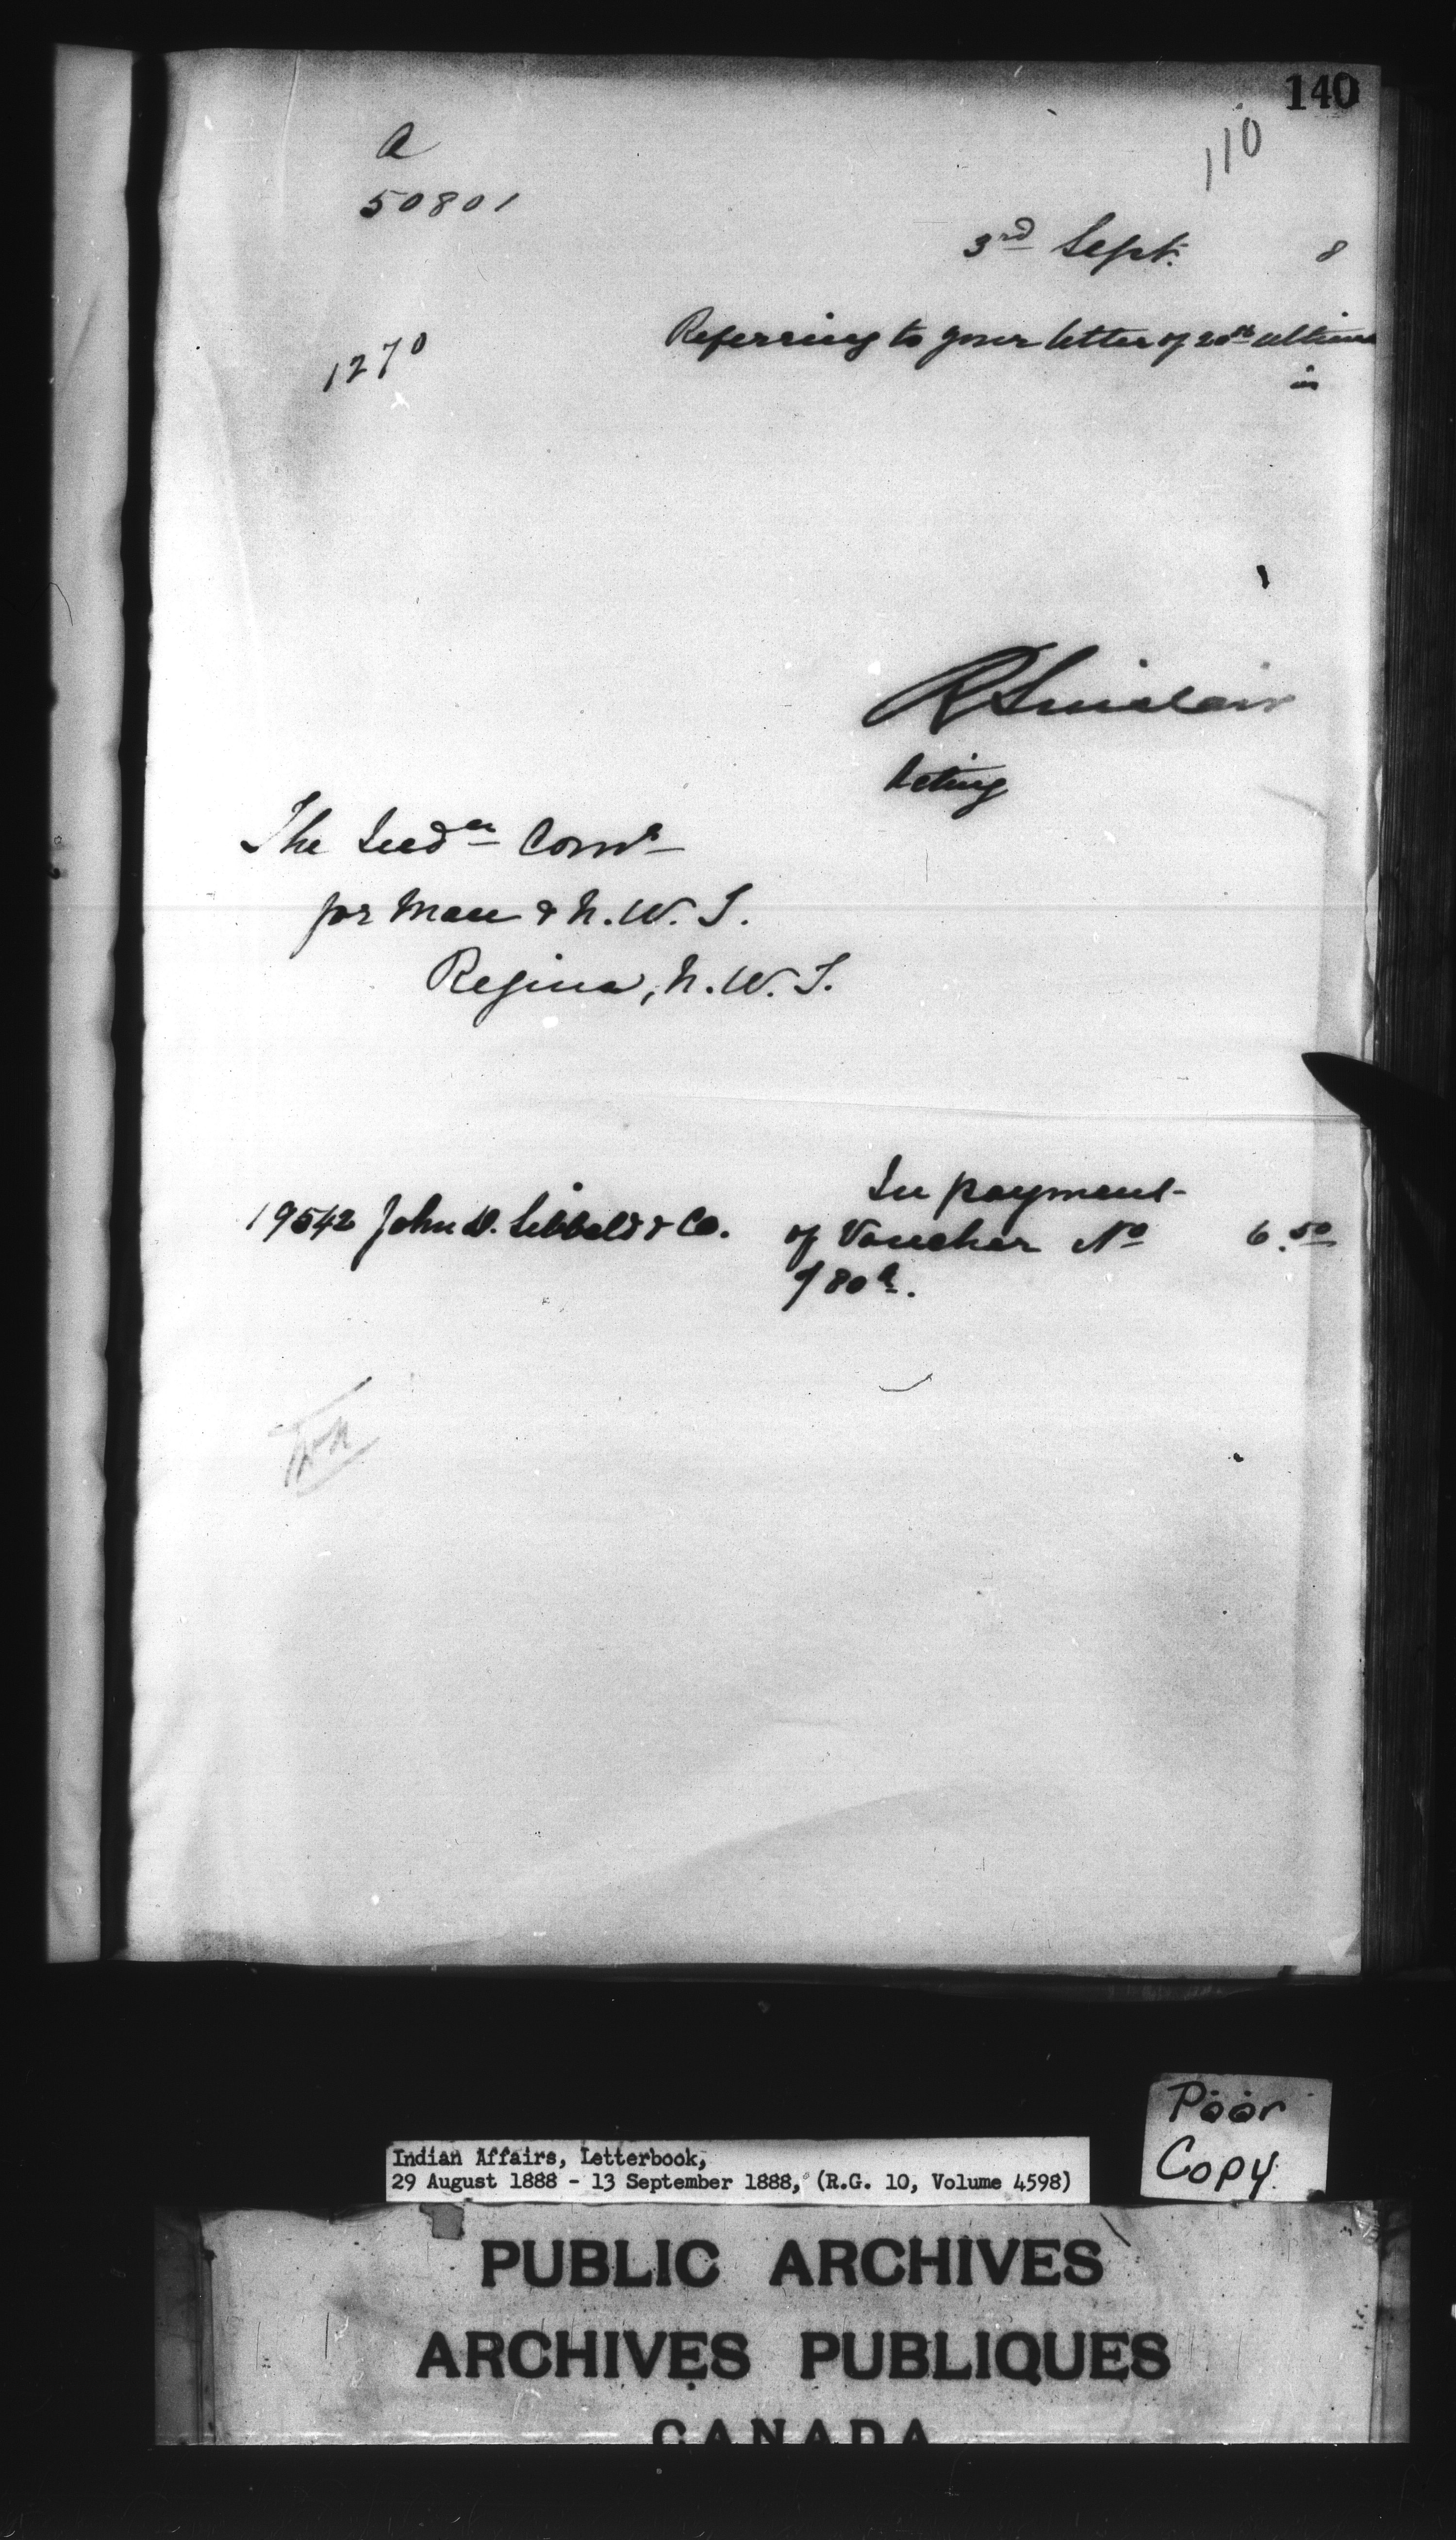 140
110
a
50801
3rd Sept. 8
1270
Referring to your letter of 20th ultimo
in
RSinclair
Acting
The Indan Comr
for Man & N.W.T.
Regina, N.W.T.
19542 John D. Sibbald & Co.
In payment
of Voucher No 6.50
Indian Affairs, Letterbook,
29 August 1888 - 13 September 1888, (R.G. 10, Volume 4598)
Poor
Copy
PUBLIC ARCHIVES
ARCHIVES PUBLIQUES
CANADA